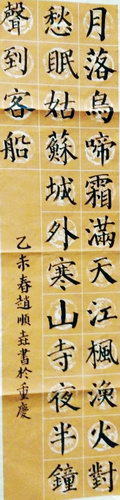 月落烏啼霜滿天江楓漁火對
愁眠姑蘇城外寒山寺夜半鐘
聲到客船
乙未春趙順垚書於重慶